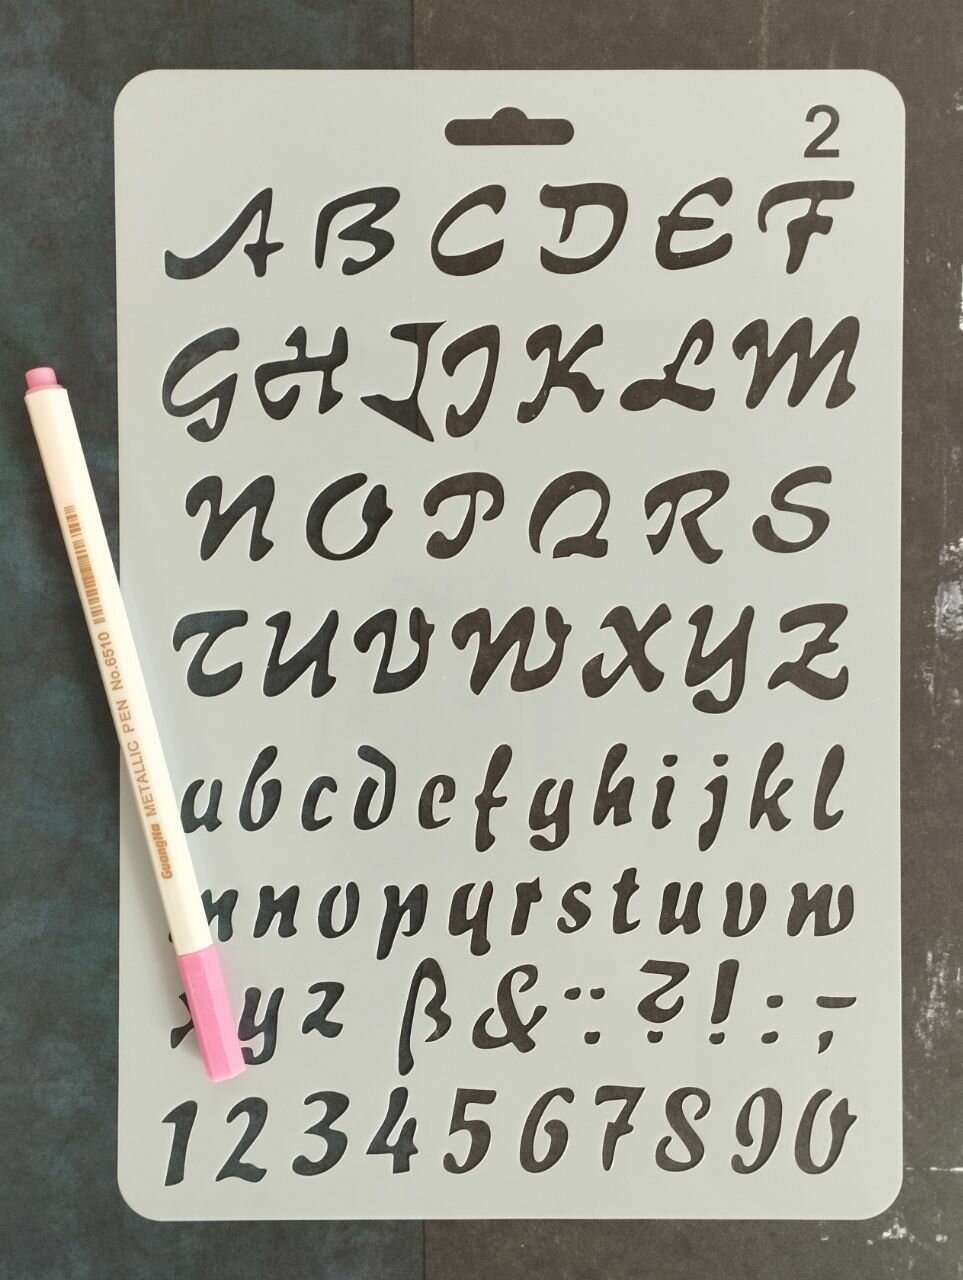 2
A B C D E F
G H I J K L M
N O P Q R S
T U V W X Y Z
a b c d e f g h i j k l
m n o p q r s t u v w
x y z ß & ¨ : ? ! : - ;
1 2 3 4 5 6 7 8 9 0
GuangNa METALLIC PEN No.6510